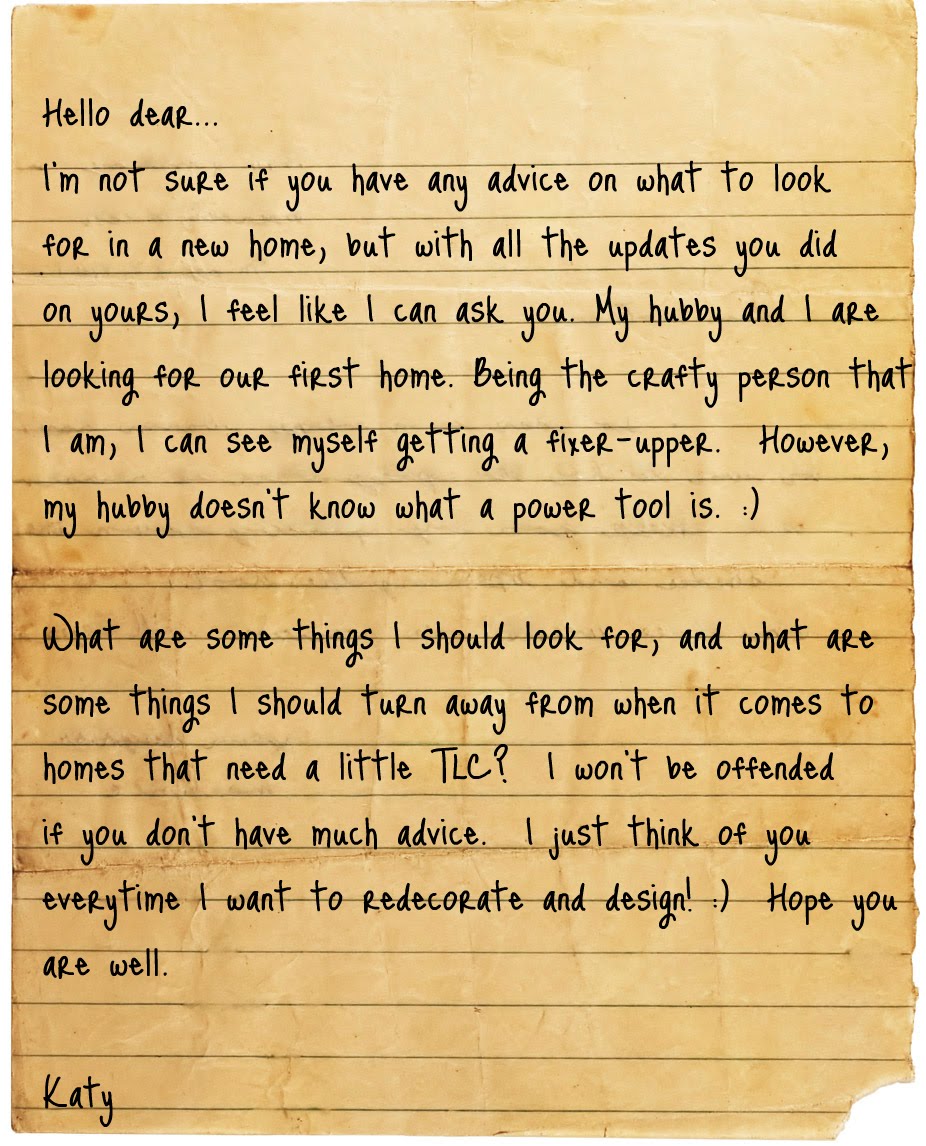 Hello dear...
I'm not sure if you have any advice on what to look
for in a new home, but with all the updates you did
on yours, I feel like I can ask you. My hubby and I are
looking for our first home. Being the crafty person that
I am, I can see myself getting a fixer-upper. However,
my hubby doesn't know what a power tool is. :)
What are some things I should look for, and what are
some things I should turn away from when it comes to
homes that need a little TLC? I won't be offended
if you don't have much advice. I just think of you
everytime I want to redecorate and design! :) Hope you
are well.
Katy